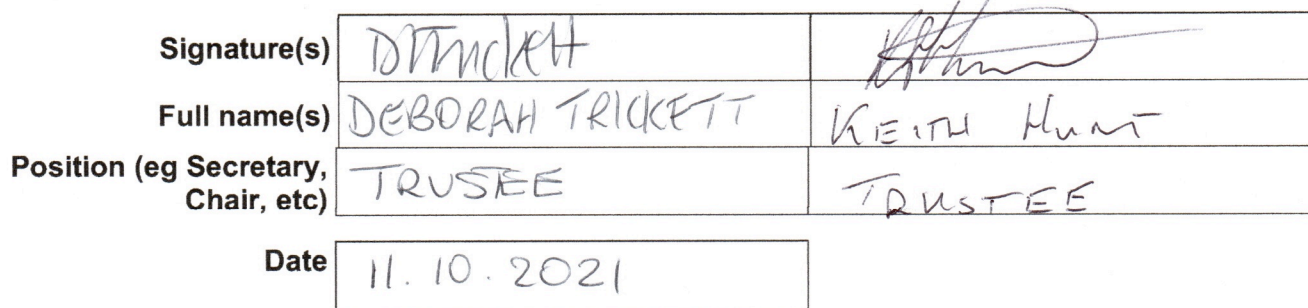 Signature(s) DTrickett
Full name(s) DEBORAH TRICKETT KEITH HUNT
Position (eg Secretary, Chair, etc) TRUSTEE TRUSTEE
Date 11.10.2021